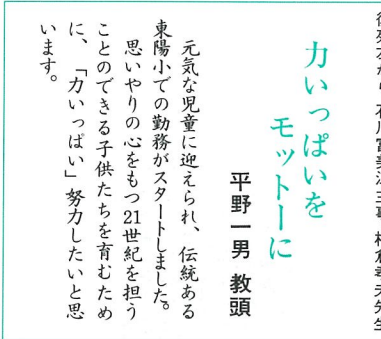 力いっぱいを
モットーに
平野一男 教頭
元気な児童に迎えられ、伝統ある
東陽小での勤務がスタートしました。
思いやりの心をもつ21世紀を担う
ことのできる子供たちを育むため
に、「力いっぱい」努力したいと思
います。